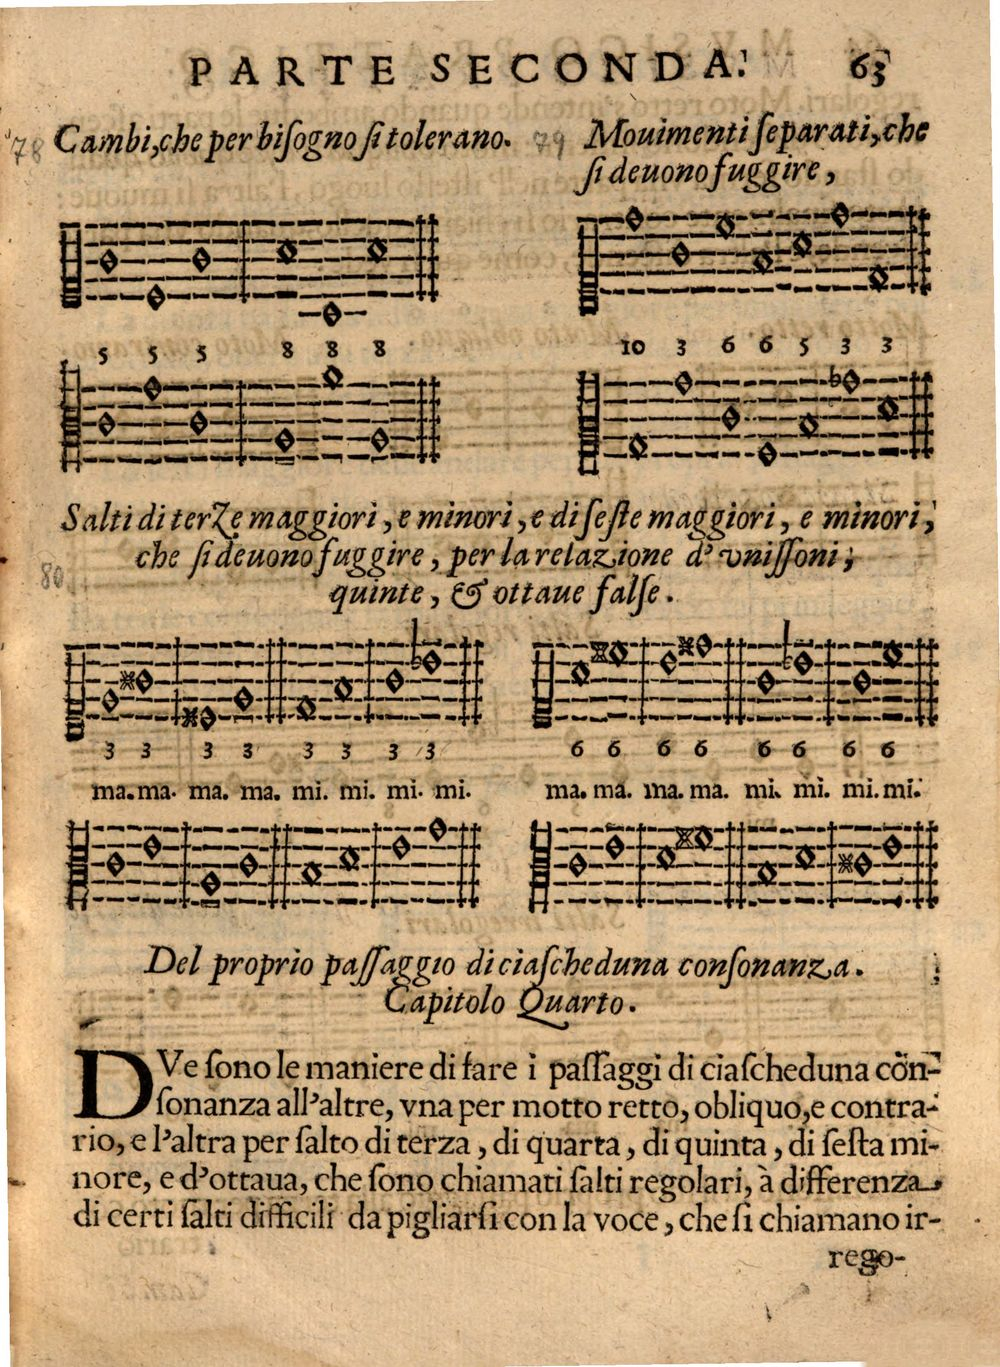 PARTE SECONDA. 63
78 Cambi, che per biſogno ſi tolerano.
79 Mouimenti ſeparati, che
ſi deuono fuggire,
5 5 5 8 8 8
10 3 6 6 5 3 3
Salti di terze maggiori, e minori, e di ſeſte maggiori, e minori,
80 che ſi deuono fuggire, per la relazione d'vniſſoni,
quinte, & ottaue falſe.
3 3 3 3 3 3 3 3
6 6 6 6 6 6 6 6
ma. ma. ma. ma. mi. mi. mi. mi.
ma. ma. ma. ma. mi. mi. mi. mi.
Del proprio paſſaggio di ciaſcheduna conſonanza.
Capitolo Quarto.
DVe ſono le maniere di fare i paſſaggi di ciaſcheduna cõn-
ſonanza all'altre, vna per motto retto, obliquo, e contra-
rio, e l'altra per ſalto di terza, di quarta, di quinta, di ſeſta mi-
nore, e d'ottaua, che ſono chiamati ſalti regolari, à differenza
di certi ſalti difficili da pigliarſi con la voce, che ſi chiamano ir-
rego-